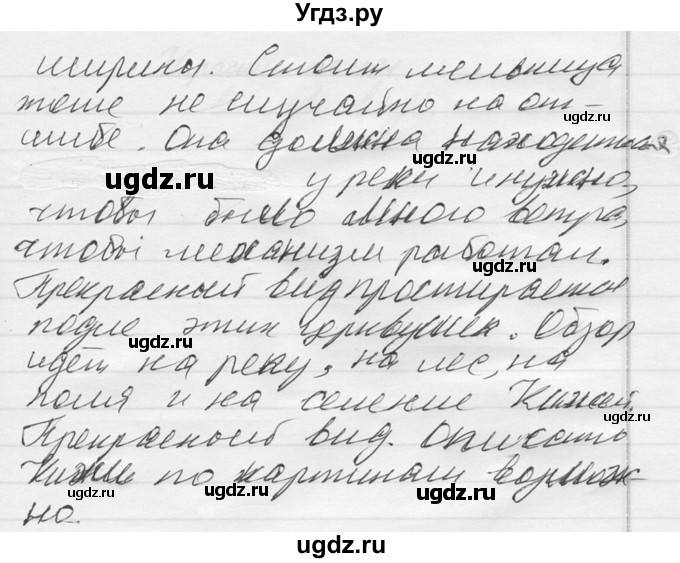 Угдз.ру
ширины. Стоит мельница
тоже не случайно на от-
шибе. Она должна находиться
ugdz.ru у реки и нужно,
чтобы было много ветра,
ugdz.ru
чтобы механизм работал.
ugdz.ru
Прекрасный вид простирается
подле этих деривушек. Обзор
ugdz.ru
идёт на реку, на лес, на
ugdz.ru
поля и на селение Кижей.
ugdz.ru
Прекрасный вид. Описать
ugdz.ru
Кижи по картинам возмож-
ugdz.ru
но.
ugdz.ru